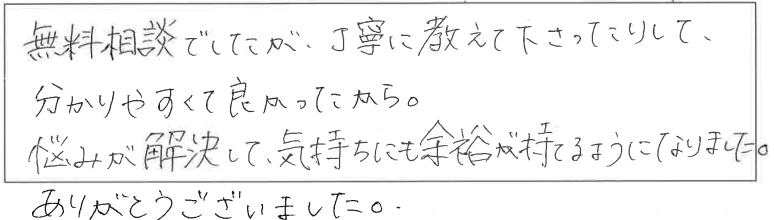 無料相談でしたが、丁寧に教えて下さったりして、
分かりやすくて良かったから。
悩みが解決して、気持ちにも余裕が持てるようになりました。
ありがとうございました。